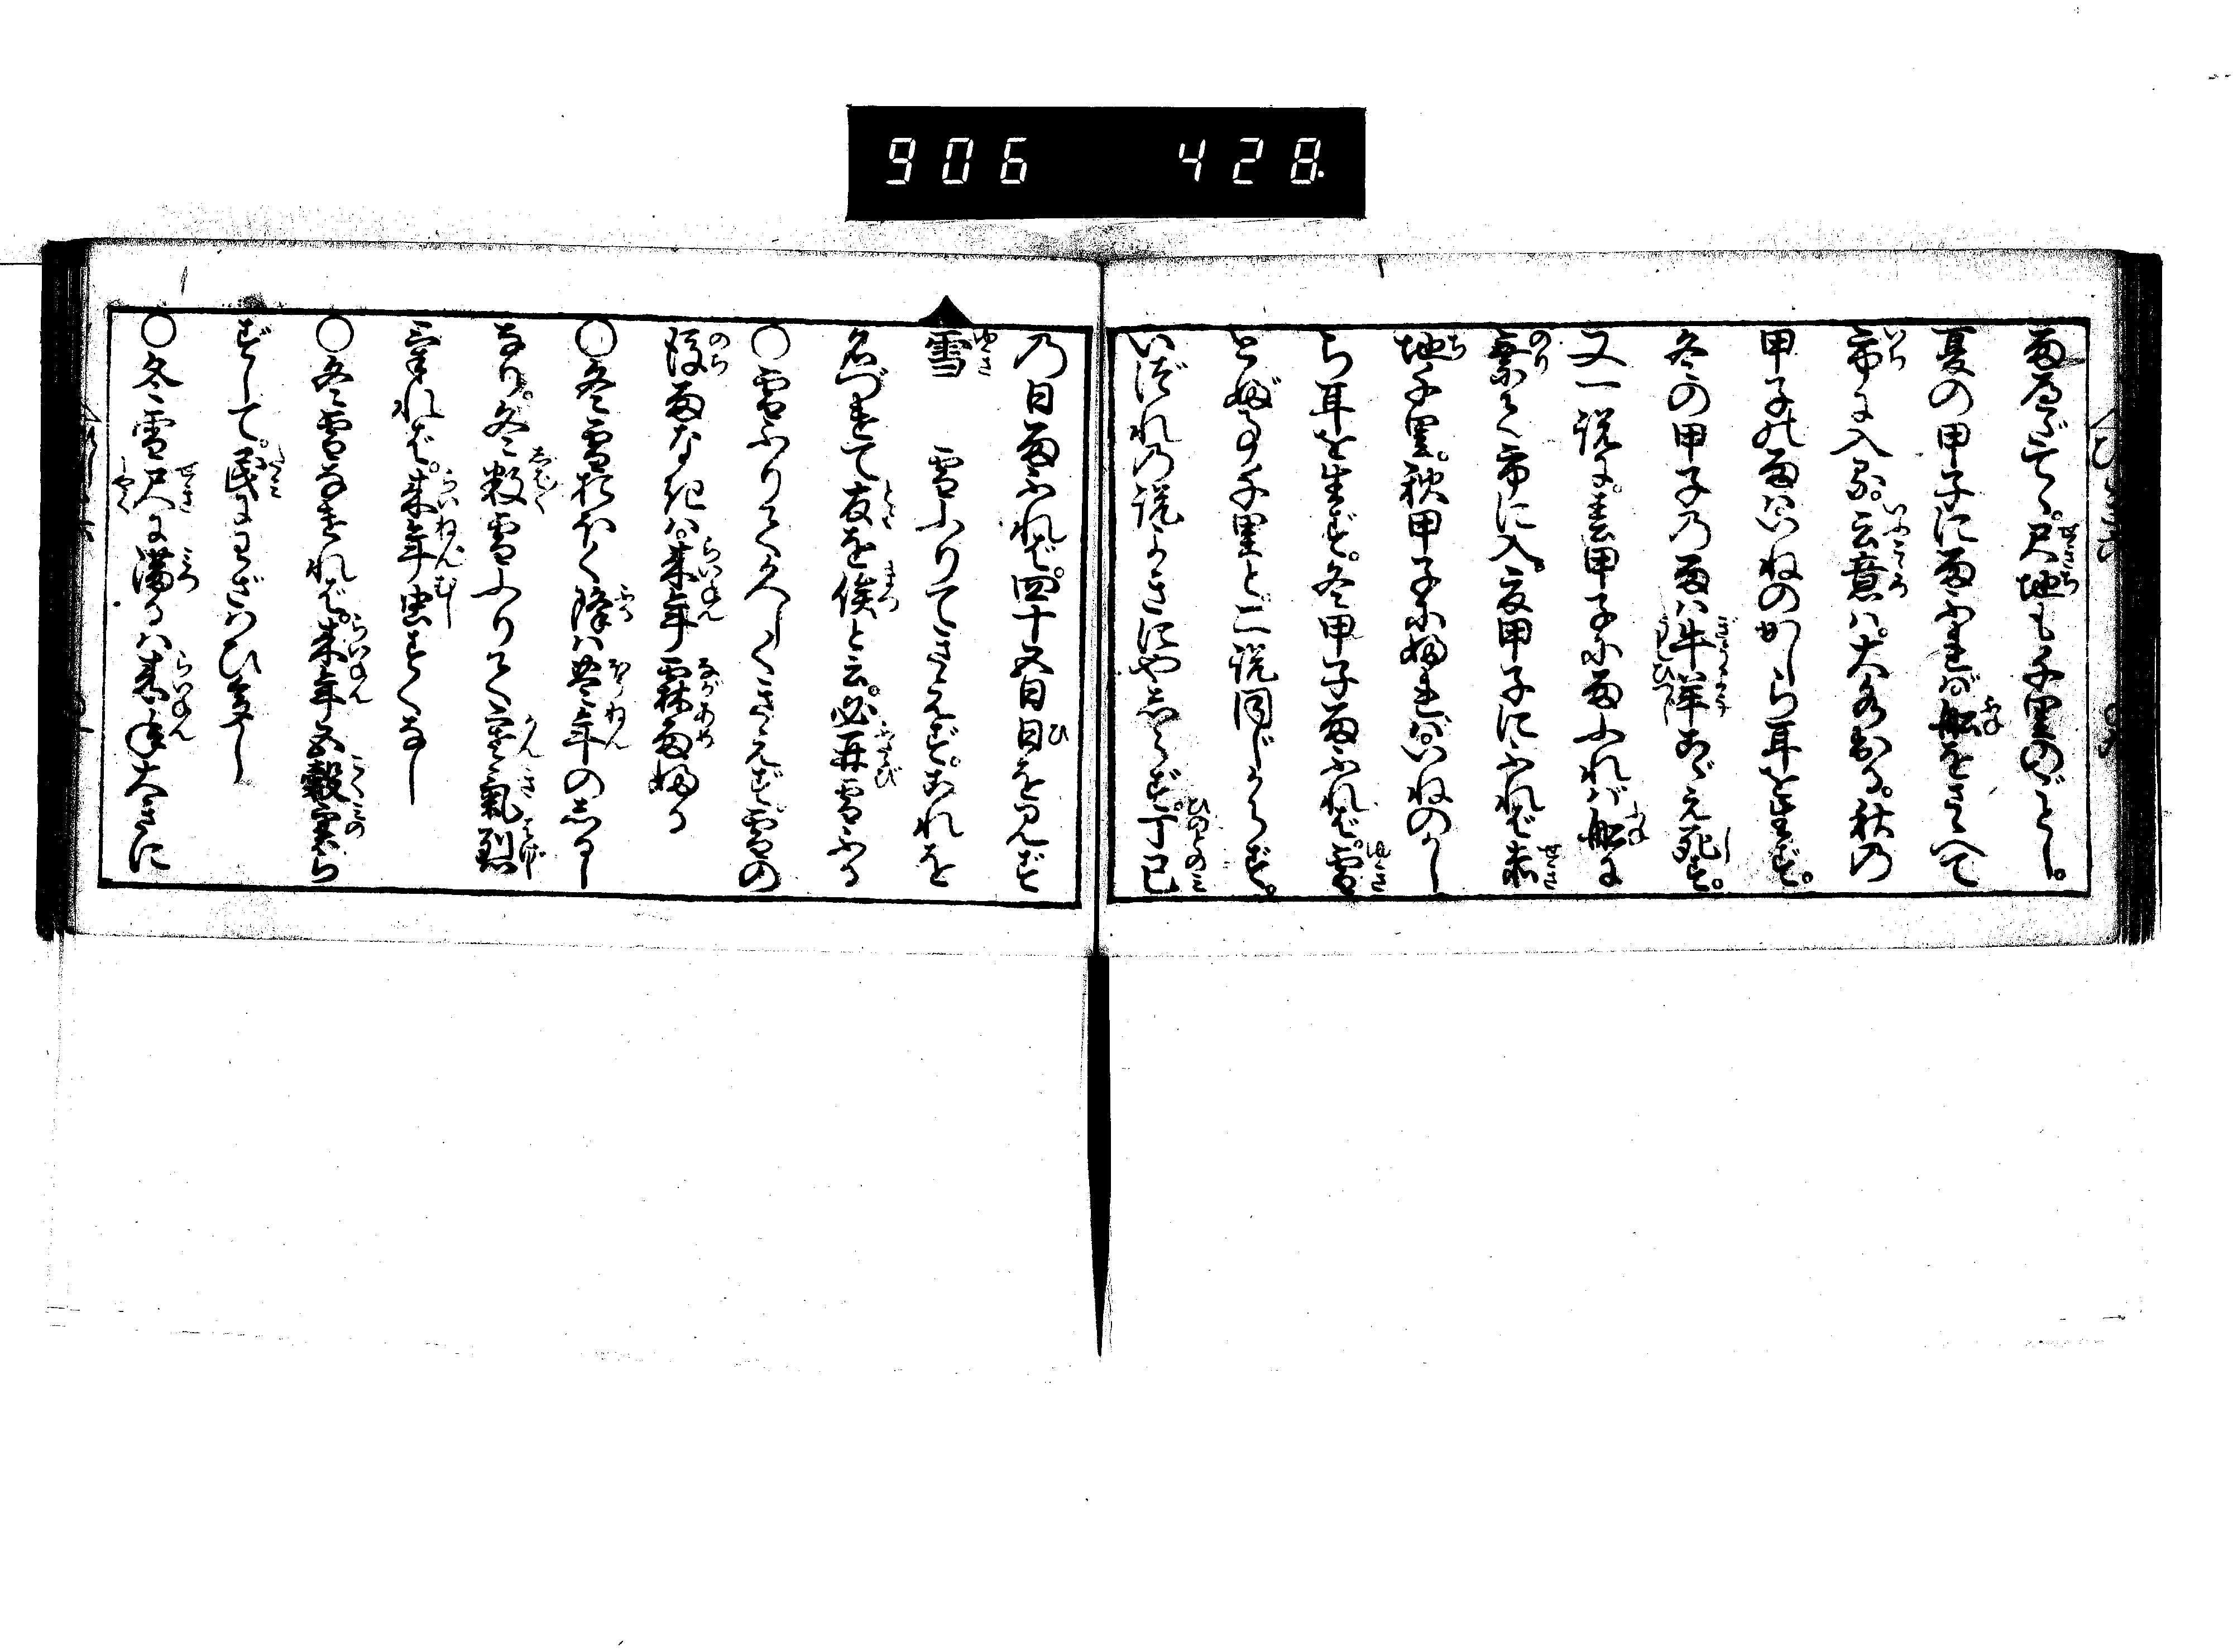 906 428
雨ふらずして。尺地も千里のごとし。
夏の甲子に雨ふれば船をさへて
市に入る。云意ハ。大水出る。秋の
甲子の雨ハいねのかしら耳を生ず。
冬の甲子乃雨ハ牛羊こゞえ死す。
又一説に。春甲子に雨ふれば船に
乗て市に入。夏甲子にふれば赤
地千里。秋甲子にふればいねのかし
ら耳を生ず。冬甲子雨ふれば。雪
とぶ事千里と。二説同じからず。
いづれの説よきにやしらず。丁巳
乃日雨ふれば。四十五日日を見ず
雪 雪ふりてきえず。これを
名づけて友を俟と云。必再雪ふる
○雪ふりて久しくきえず雪の
後雨なきハ。来年霖雨ふる
○冬雪おほく降ハ豊年のしるし
なり。冬数雪ふりて寒気烈
ければ。来年虫すくなし
○冬雪なければ。来年五穀実ら
ずして。民にわざハひ多し
○冬雪尺に満るハ来年大きに